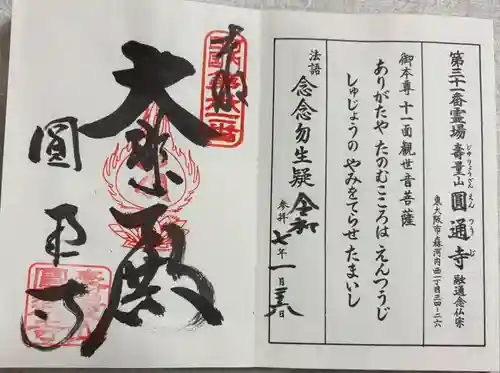 第三十一番霊場 壽量山 圓通寺 融通念仏宗
じゅりょうざん えんつうじ
東大阪市森河内西一丁目三四-二六
御本尊 十一面観世音菩薩
ありがたや たのむこころは えんつうじ
しゅじょうの やみをてらせ たまいし
法語 念念勿生疑
参拝 令和七年一月二五日
奉拝
大悲殿
圓通寺